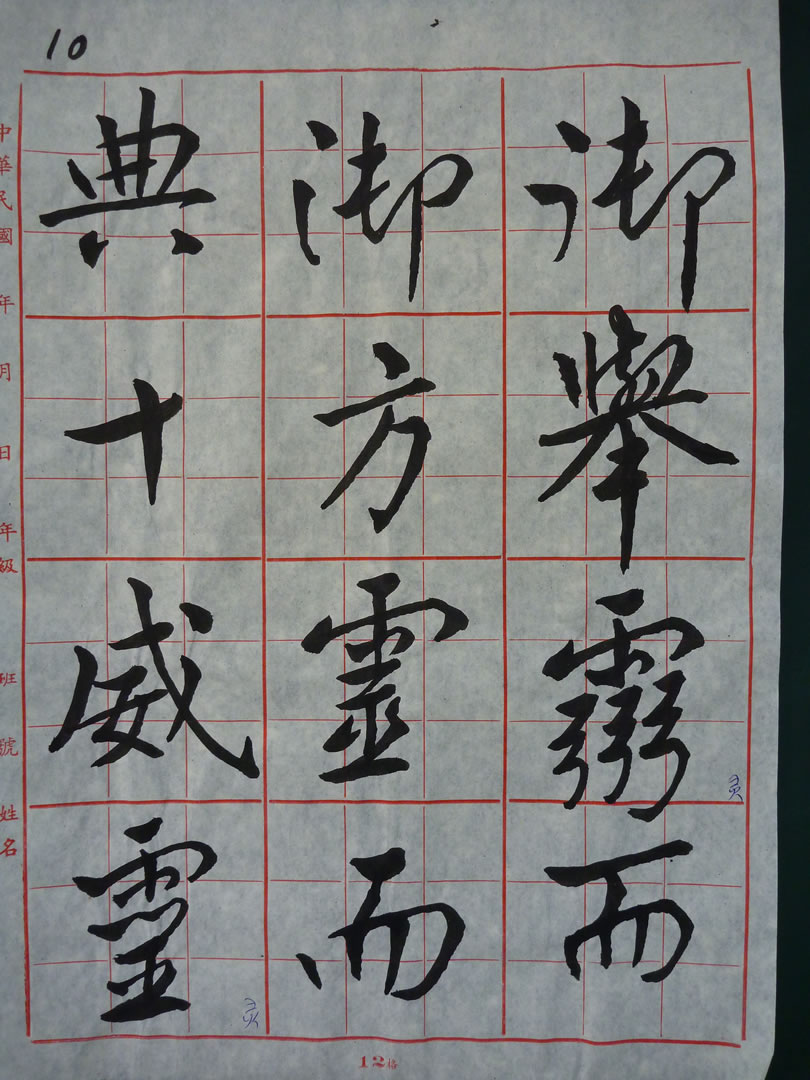 10
御舉靈而
灵
御方靈而
典十威靈
灵
中華民國 年 月 日 年級 班 號 姓名
12格